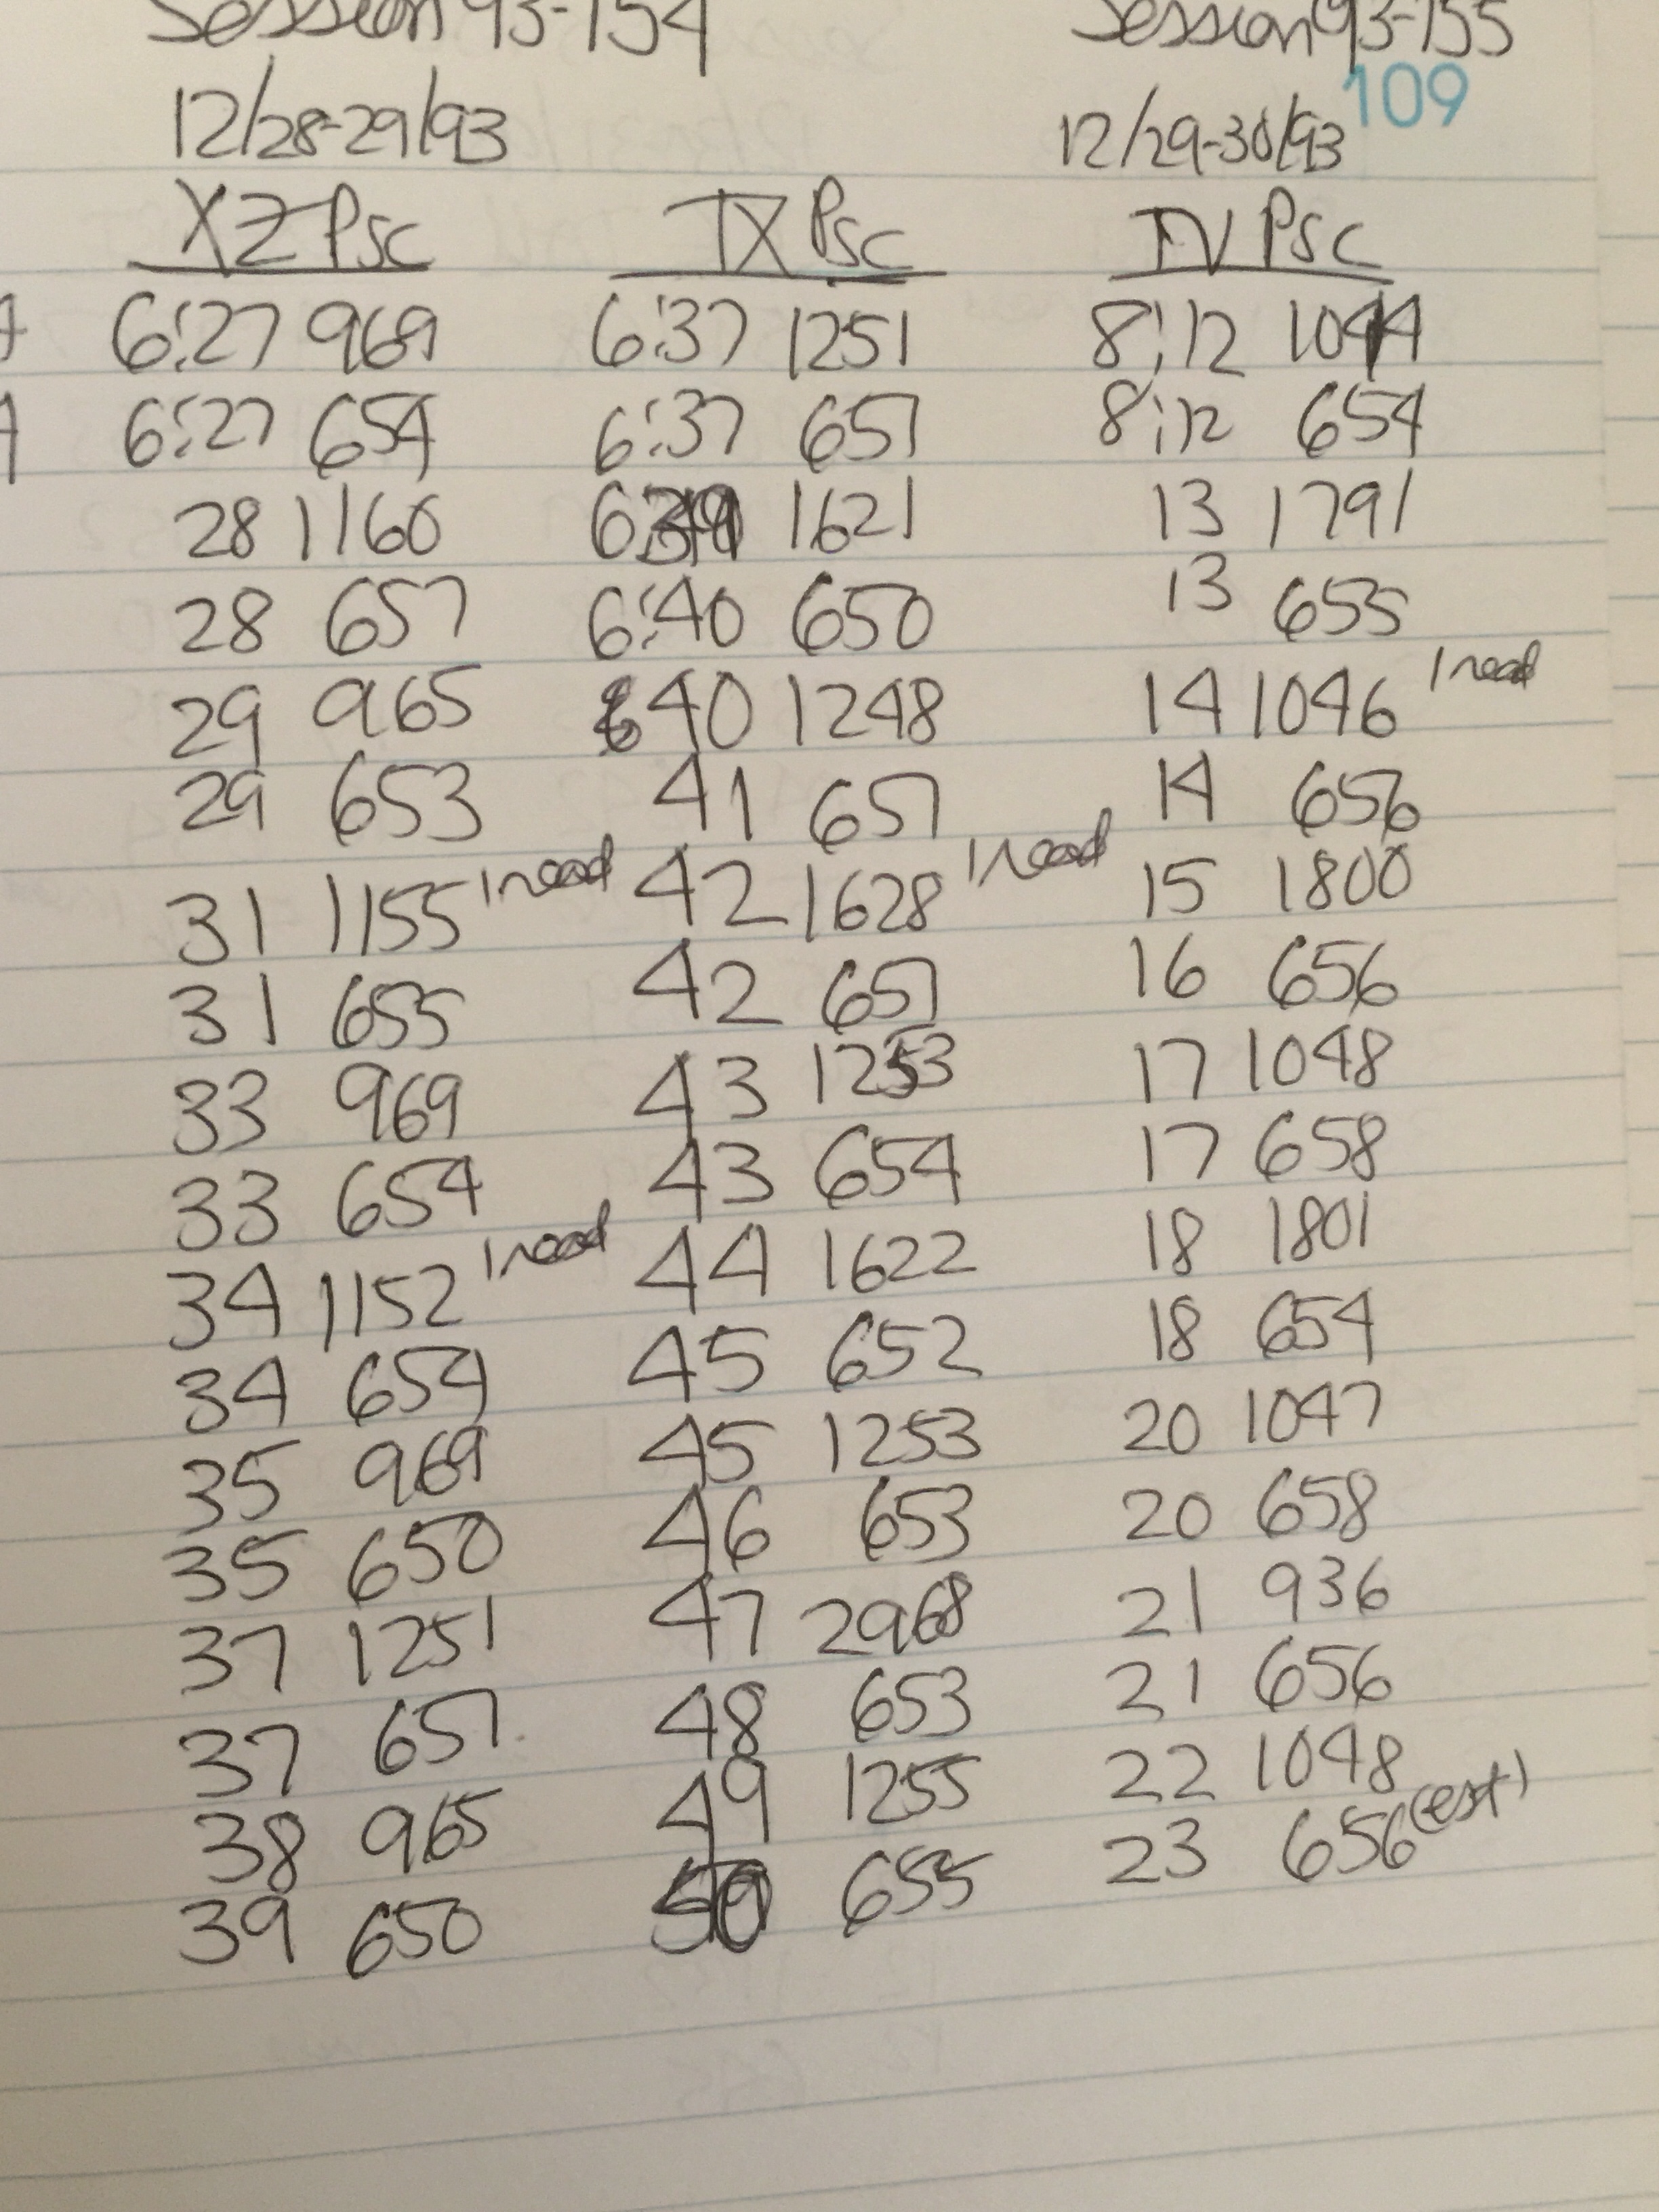 Session 93-154 Session 93-155
109
12/28-29/93 12/29-30/93
XZ Psc TX Psc TV Psc
6:27 969 6:37 1251 8:12 1044
6:27 654 6:37 651 8:12 654
28 1160 1621 13 1791
28 657 6:40 650 13 655
29 965 40 1248 14 1046 1 read
29 653 41 651 14 656
31 1155 1 read 42 1628 1 read 15 1800
31 655 42 651 16 656
33 969 43 1253 17 1048
33 654 43 654 17 658
34 1152 1 read 44 1622 18 1801
34 654 45 652 18 654
35 969 45 1253 20 1047
35 650 46 653 20 658
37 1251 47 2968 21 936
37 651 48 653 21 656
38 965 49 1255 22 1048
39 650 50 655 23 656 (est)